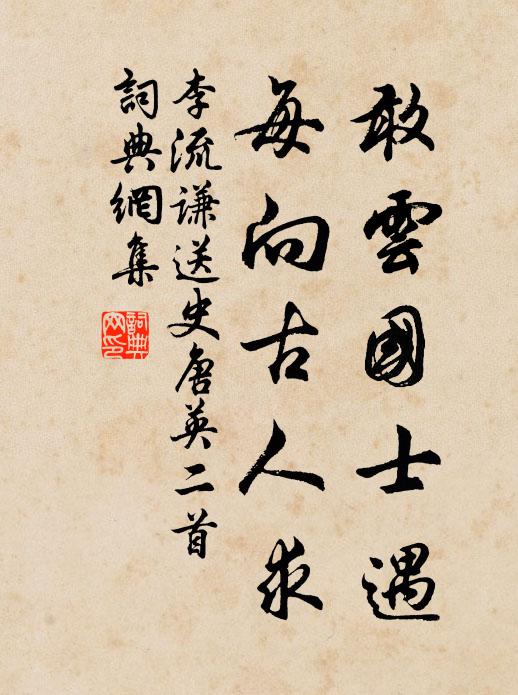 敢雲國士遇
每向古人求
李流謙送史唐英二首
詞典網集
詞典網印